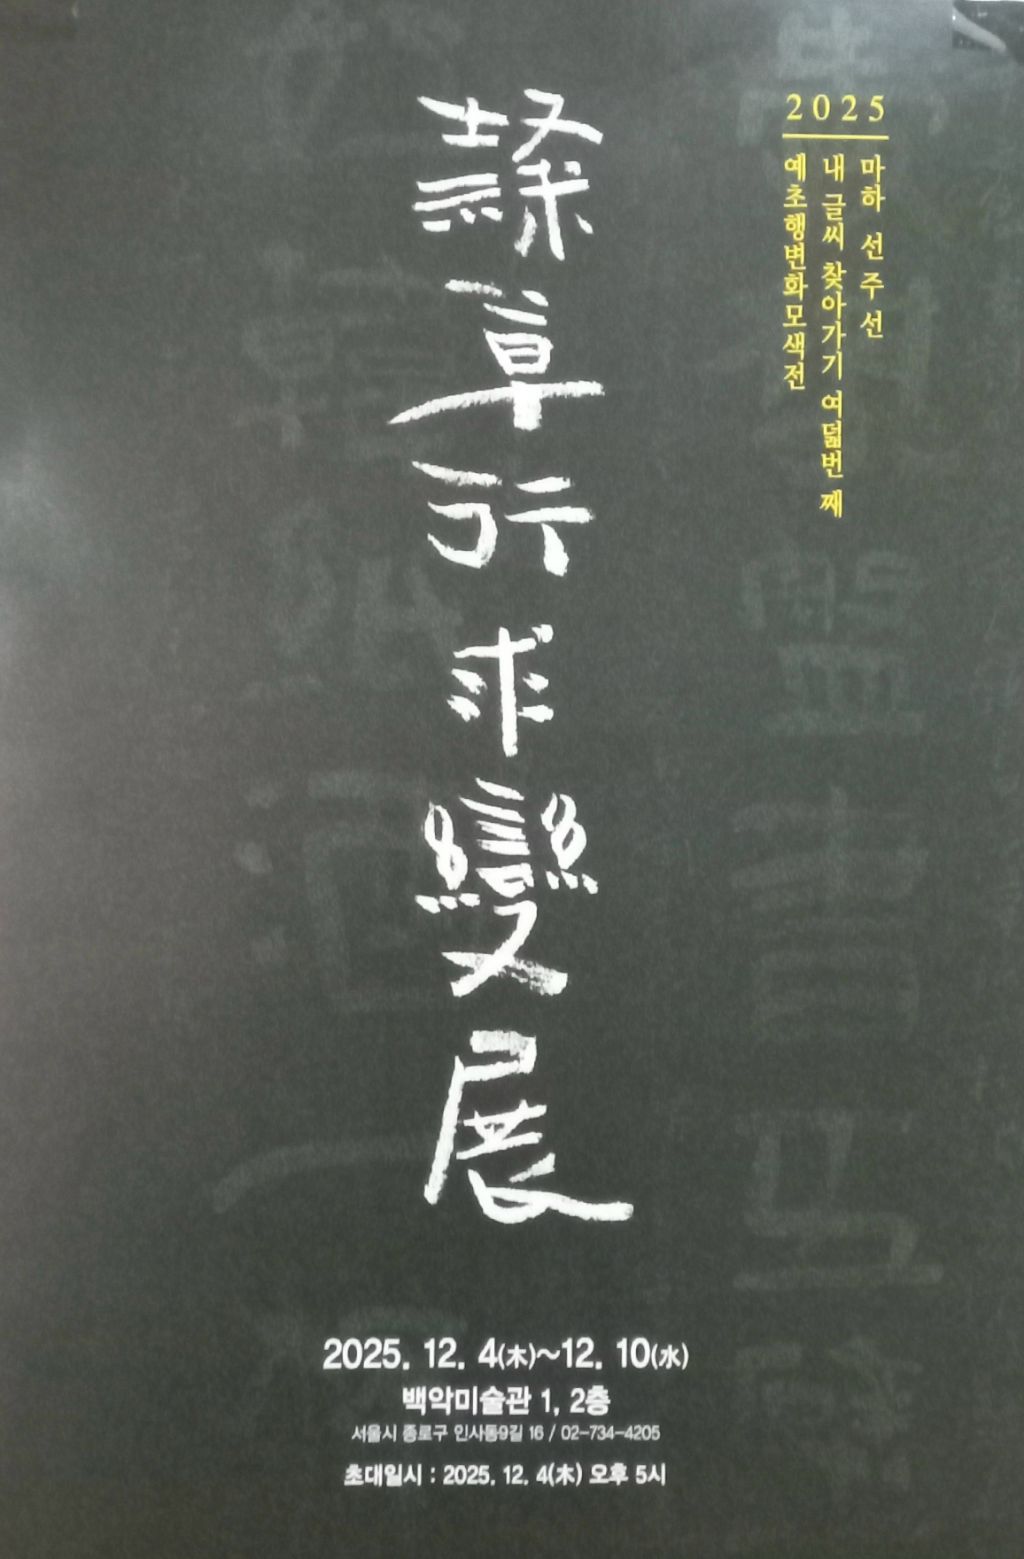 2025
마하 선주선
내 글씨 찾아가기 여덟번 째
예초행변화모색전
隷草行求變展
2025. 12. 4(木)~12. 10(水)
백악미술관 1, 2층
서울시 종로구 인사동9길 16 / 02-734-4205
초대일시 : 2025. 12. 4(木) 오후 5시